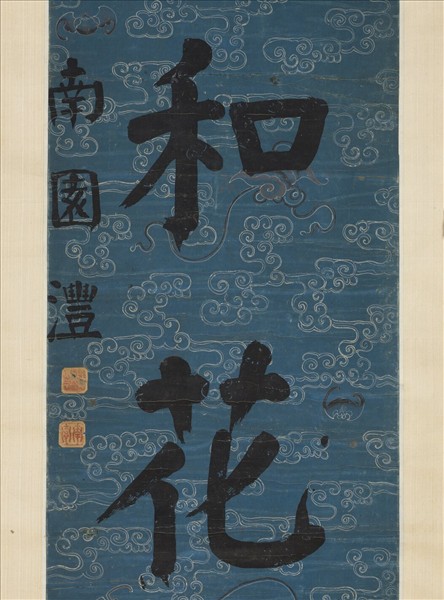 和花
南園灃